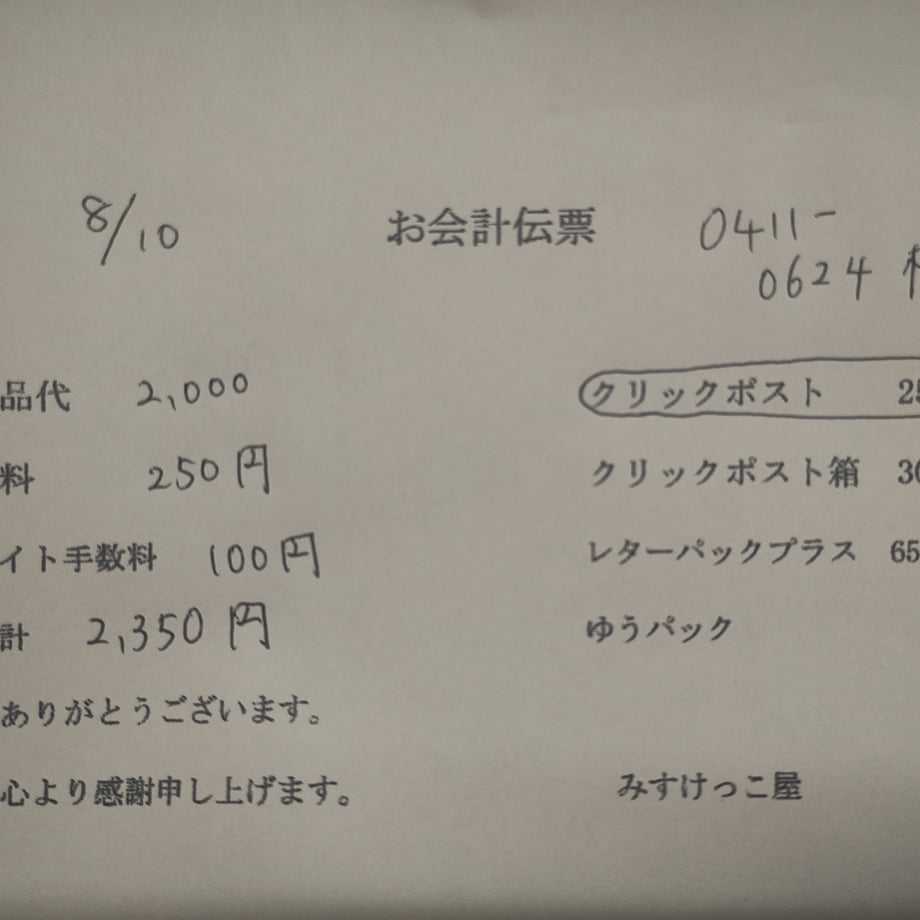 8/10 お会計伝票 0411-
0624
品代 2,000 クリックポスト 25
料 250円 クリックポスト箱 30
イト手数料 100円 レターパックプラス 65
計 2,350円 ゆうパック
ありがとうございます。
心より感謝申し上げます。 みすけっこ屋